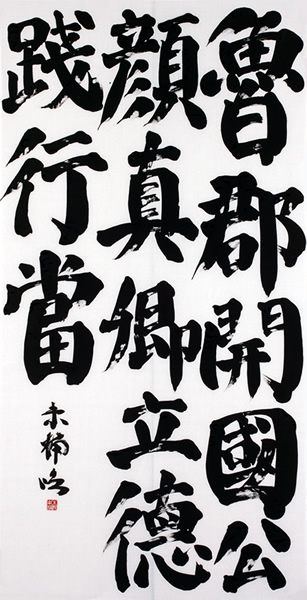 魯郡開國公
顔真卿立德
踐行當